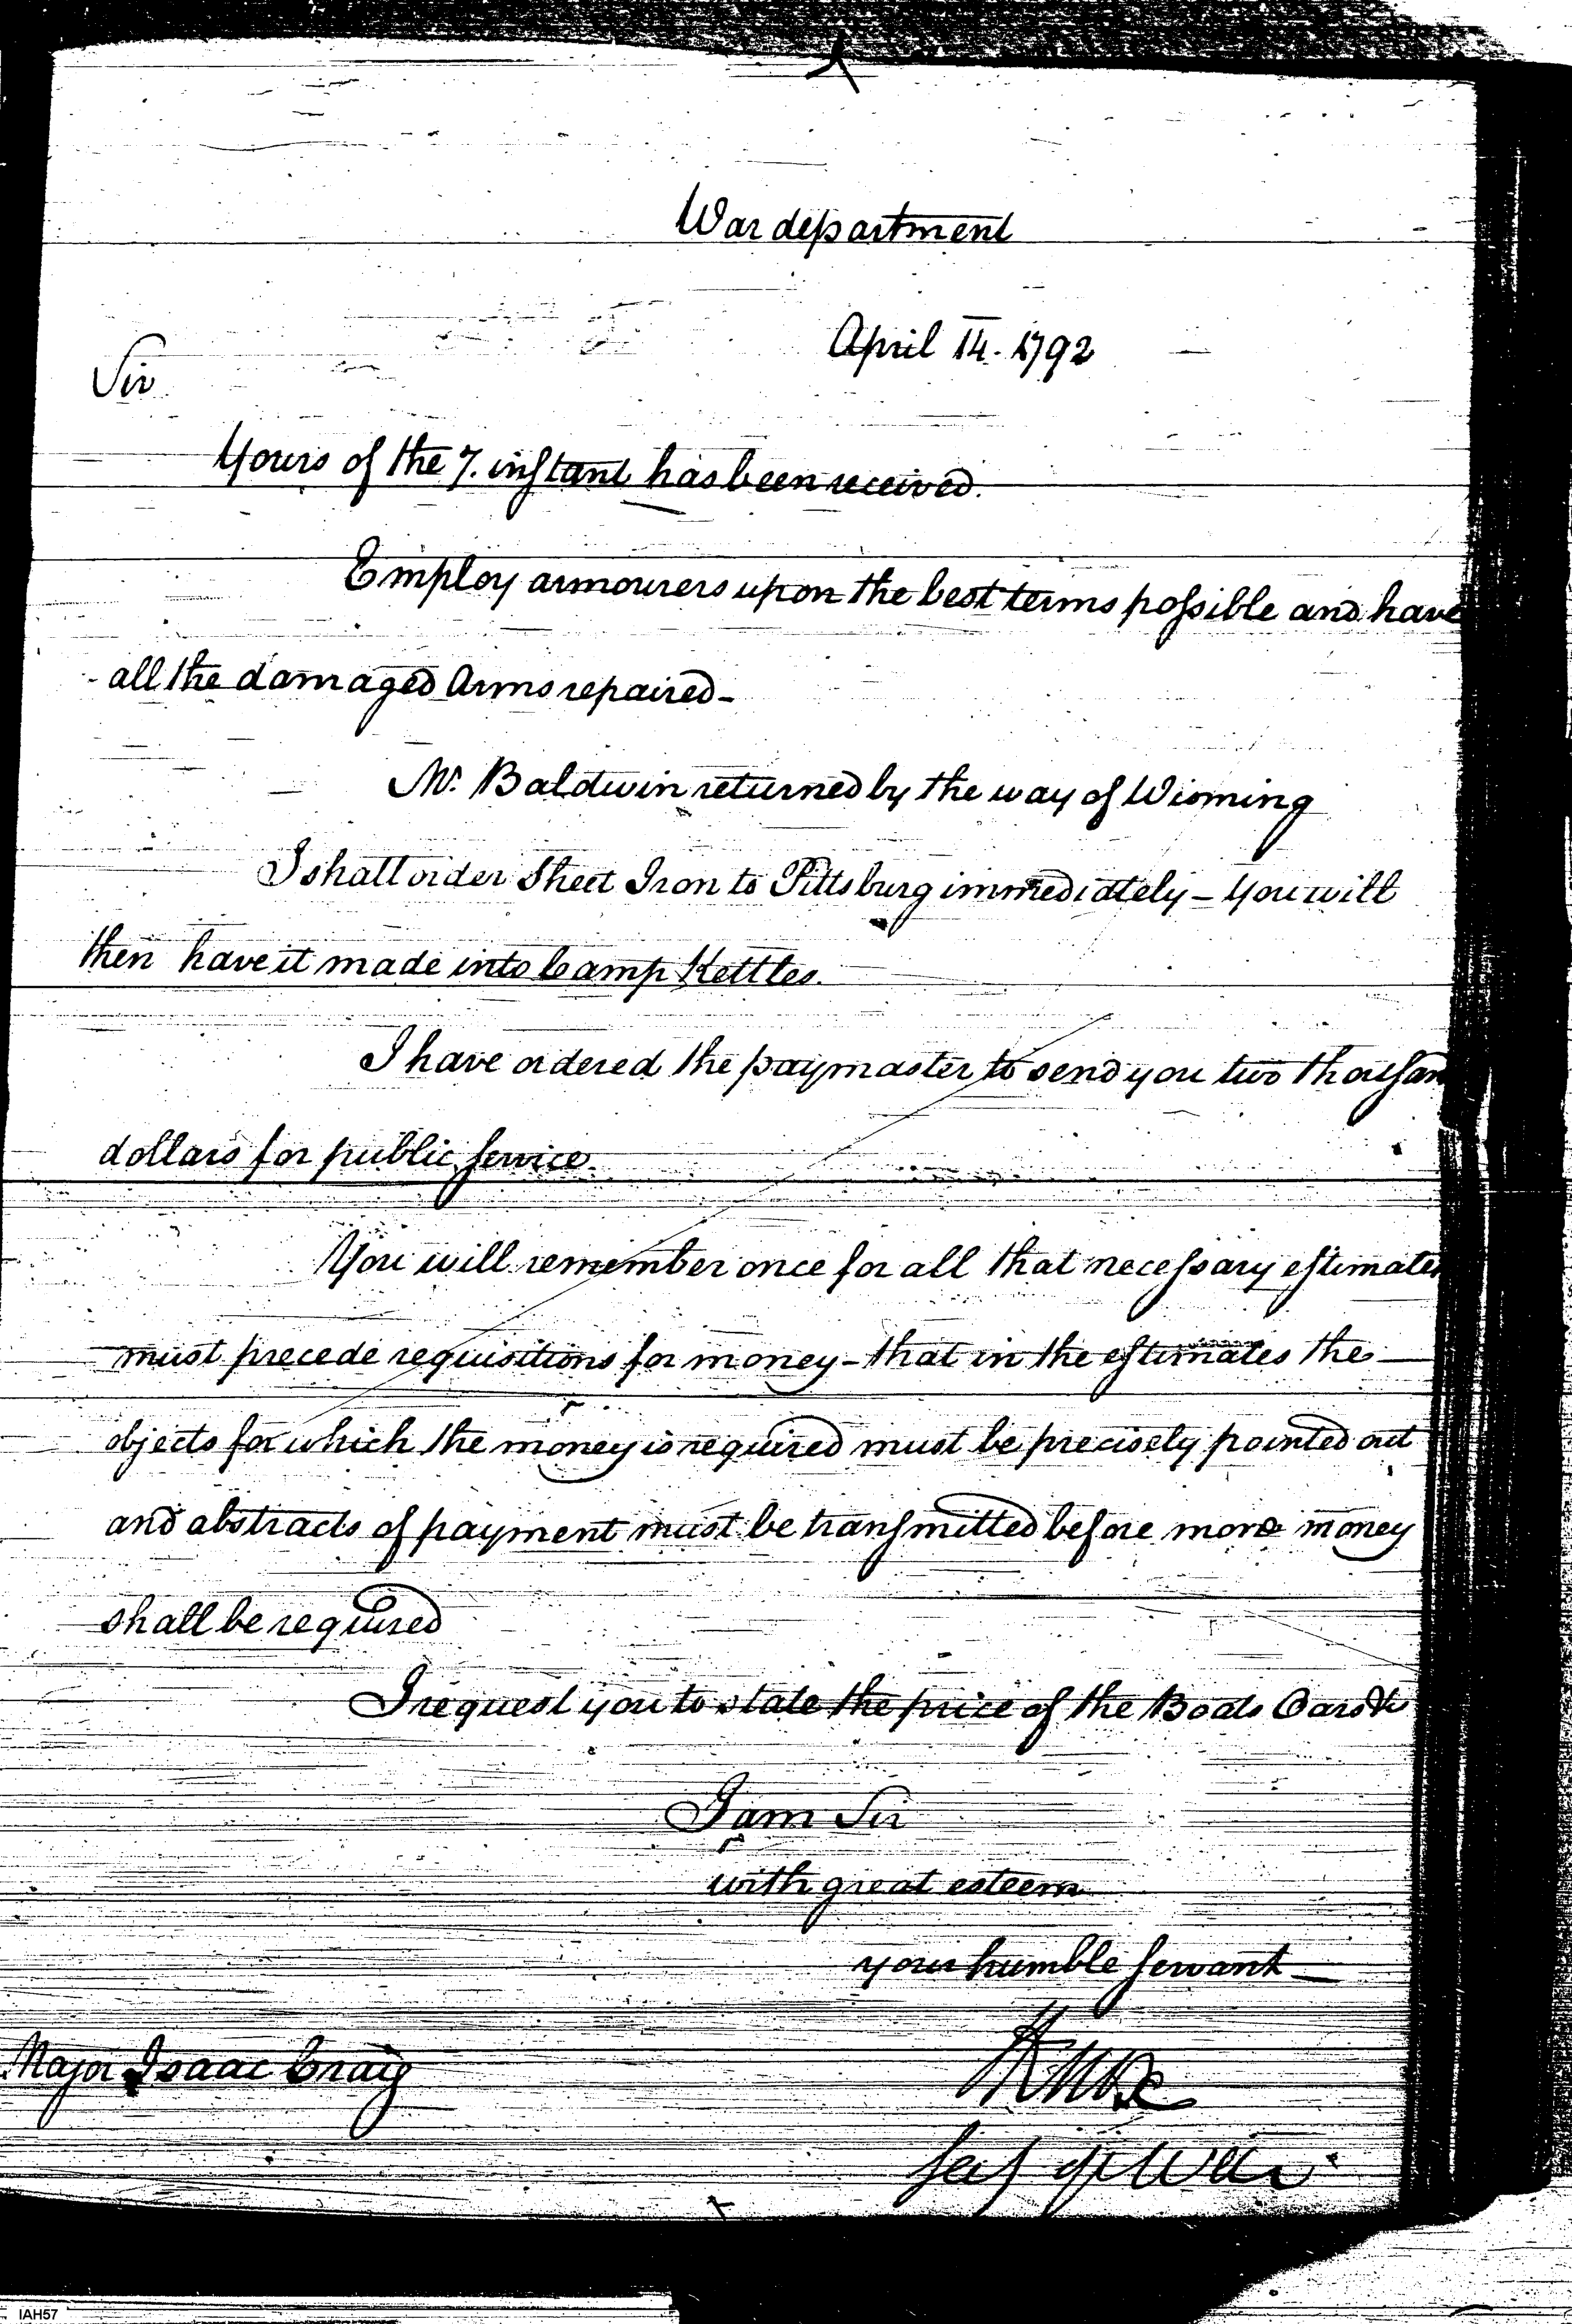 War department
April 14. 1792
Sir
Yours of the 7. instant has been received.
Employ armourers upon the best terms possible and have
all the damaged Arms repaired-
Mr. Baldwin returned by the way of Wioming
I shall order Sheet Iron to Pittsburg immediately - You will
then have it made into Camp Kettles.
I have ordered the paymaster to send you two thousan
dollars for public service.
You will remember once for all that necessary estimates
must precede requisitions for money - that in the estimates the
objects for which the money is required must be precisely pointed out
and abstracts of payment must be transmitted before more money
shall be required
I request you to state the price of the Boats Oars &c
I am Sir
with great esteem
your humble servant
HKnox
Secy of War
Major Isaac Craig
IAH57